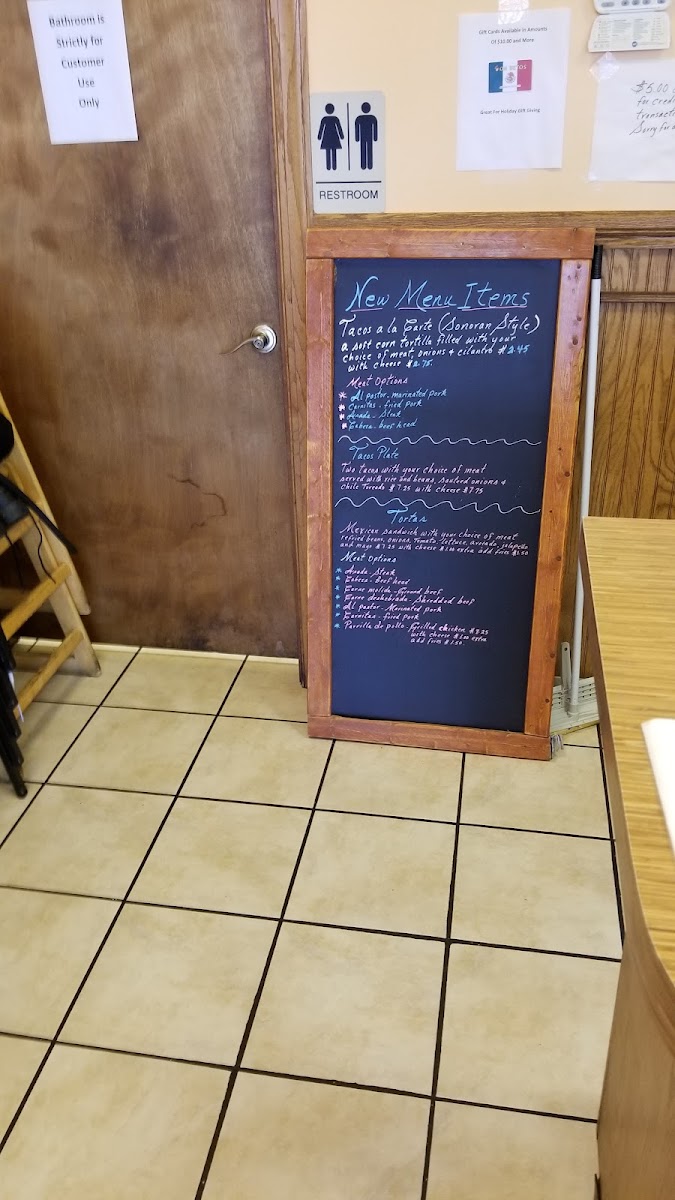 Bathroom is
Strictly for
Customer
Use
Only
RESTROOM
Gift Cards Available in Amounts
Of $10.00 and More
Great For Holiday Gift Giving
$5.00
for cred
transacti
Sorry for
New Menu Items
Tacos a la Carte (Sonoran Style)
a soft corn tortilla filled with your
choice of meat, onions & cilantro $2.45
with cheese $2.75
Meat Options
* Al pastor - marinated pork
* Carnitas - fried pork
* Asada - Steak
* Cabeza - beef head
Tacos Plate
Two tacos with your choice of meat
served with rice and beans, sauteed onions &
Chile Toreado $7.25 with cheese $7.75
Tortas
Mexican sandwich with your choice of meat
refried beans, onions, tomato, lettuce, avocado, jalapeño
and mayo $7.25 with cheese $1.00 extra add fries $1.50
Meat Options
* Asada - Steak
* Cabeza - Beef head
* Carne molida - Ground beef
* Carne deshebrada - Shredded beef
* Al pastor - Marinated pork
* Carnitas - fried pork
* Parrilla de pollo - Grilled chicken $8.25
with cheese $1.00 extra
add fries $1.50